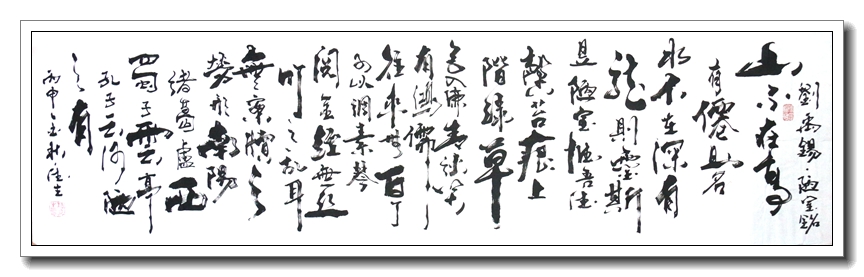 劉禹錫陋室銘
山不在高
有僊則名
水不在深有
龍則靈斯
是陋室惟吾德
馨苔痕上
階綠草
色入簾青談笑
有鴻儒
往來無白丁
可以調素琴
閱金經無絲
竹之亂耳
無案牘之
勞形南陽
諸葛廬西
蜀子雲亭
孔子云何陋
之有
丙申秋